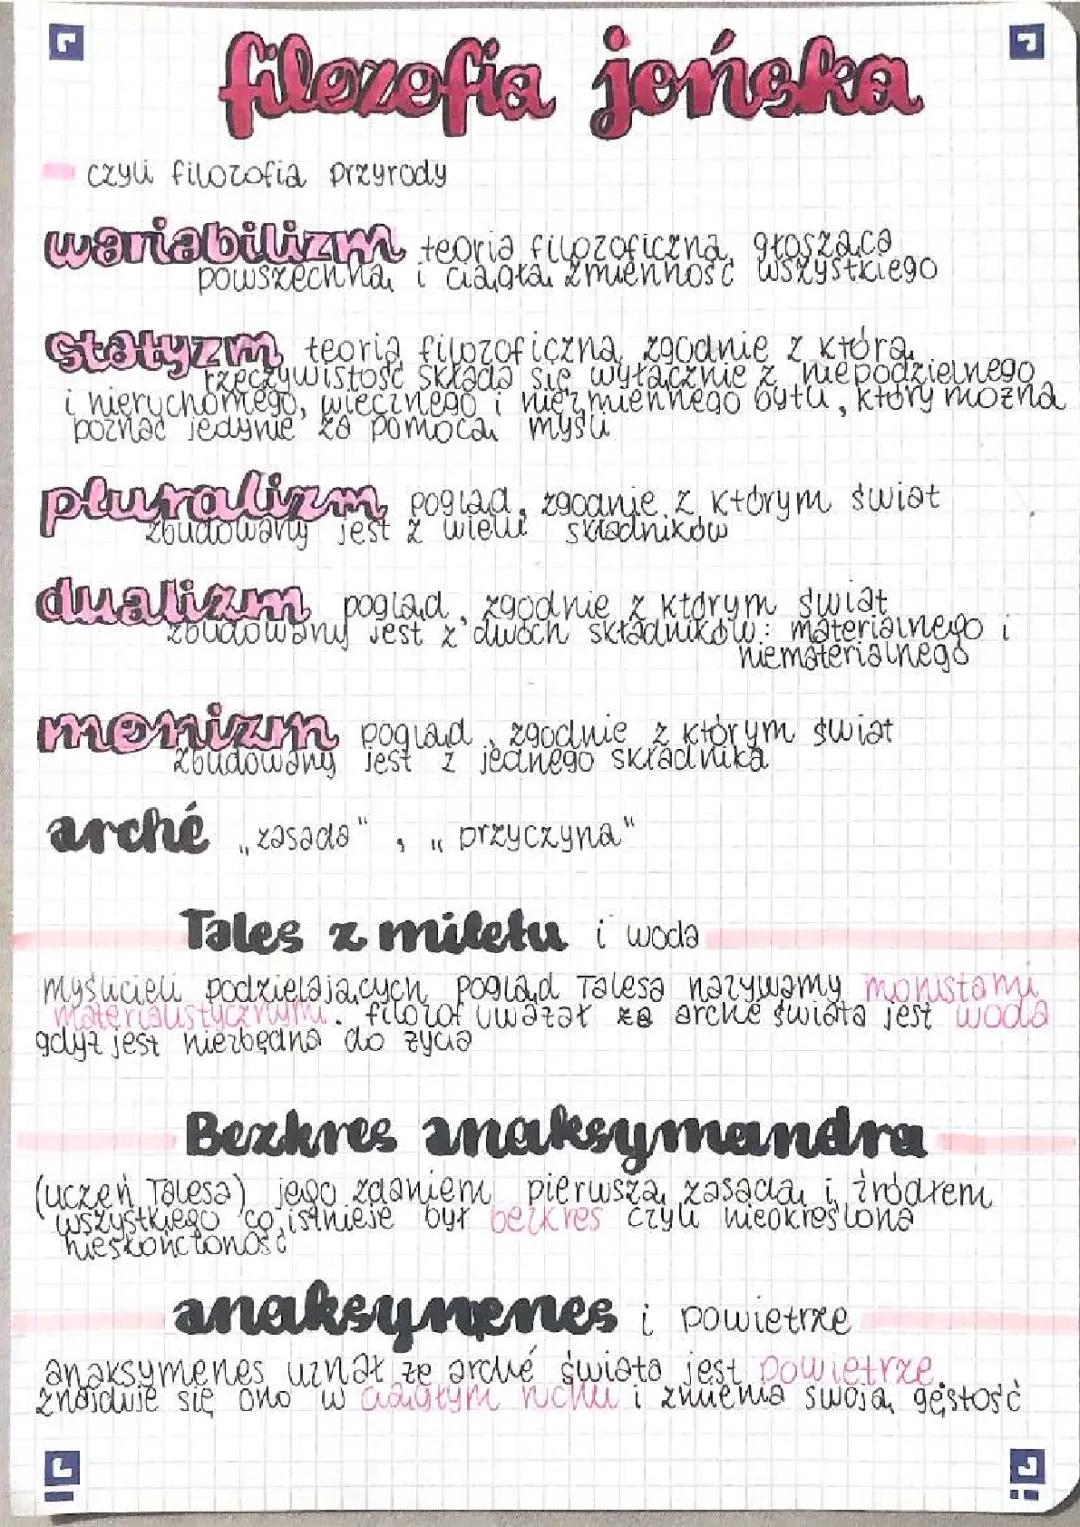 filozofia jońska
czyli filozofia przyrody
wariabilizm teoria filozoficzna, głosząca
powszechną i ciągłą zmienność wszystkiego
statyzm teoria filozoficzna, zgodnie z którą
rzeczywistość składa się wyłącznie z niepodzielnego
i nieruchomego, wiecznego i niezmiennego bytu, który można
poznać jedynie za pomocą myśli
pluralizm pogląd, zgodnie z którym świat
zbudowany jest z wielu składników
dualizm pogląd, zgodnie z którym świat
zbudowany jest z dwóch składników: materialnego i
niematerialnego
monizm pogląd, zgodnie z którym świat
zbudowany jest z jednego składnika
arché „zasada", „przyczyna"
Tales z miletu i woda
myślicieli podzielających pogląd Talesa nazywamy monistami
materialistycznymi. filozof uważał że arché świata jest woda
gdyż jest niezbędna do życia
Bezkres anaksymandra
(uczeń Talesa) jego zdaniem pierwszą zasadą i źródłem
wszystkiego co istnieje był bezkres czyli nieokreślona
nieskończoność
anaksymenes i powietrze
anaksymenes uznał że arché świata jest powietrze,
znajduje się ono w ciągłym ruchu i zmienia swoją gęstość